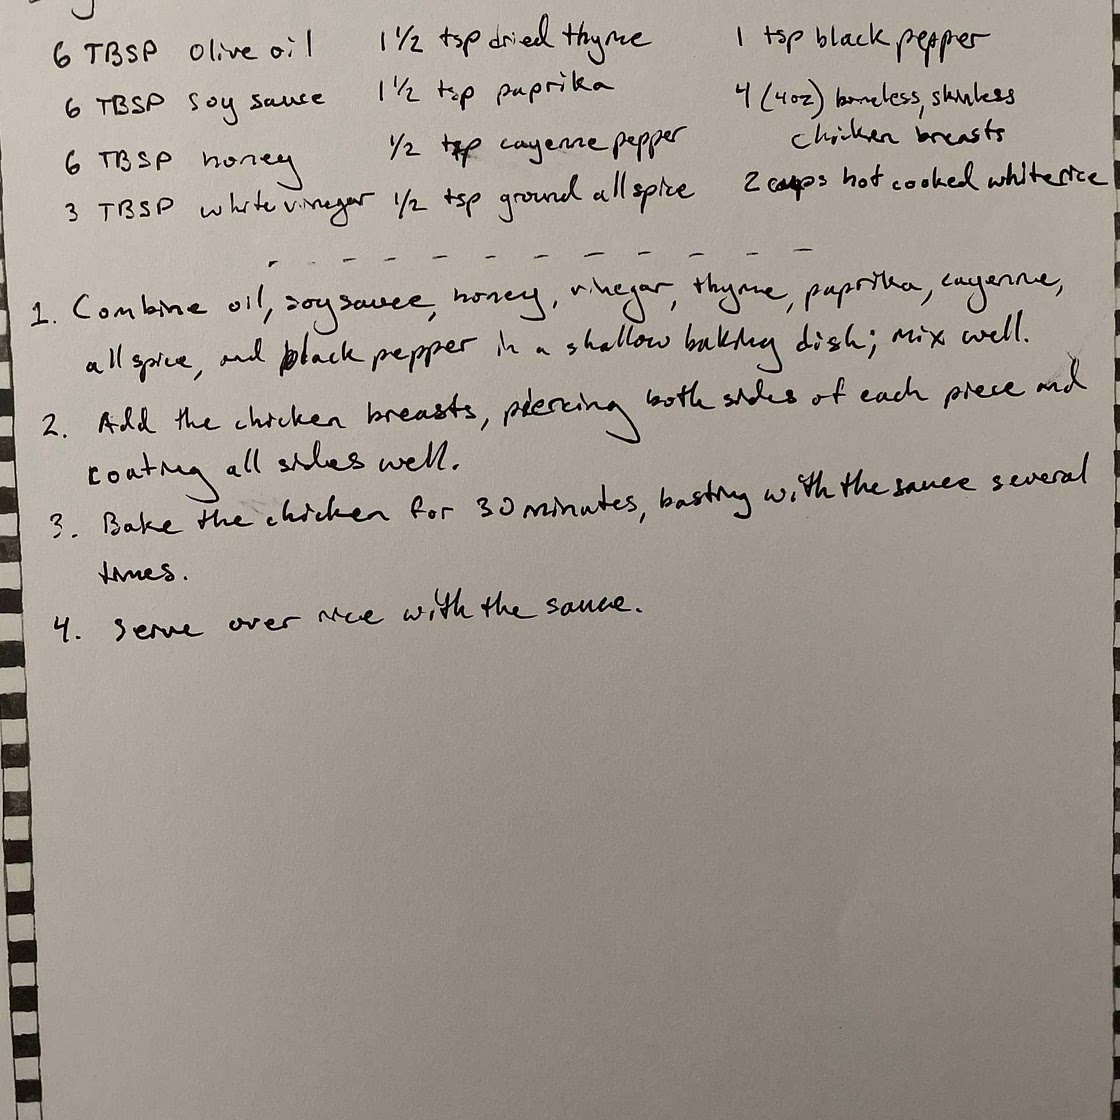 6 TBSP olive oil 1 1/2 tsp dried thyme 1 tsp black pepper
6 TBSP soy sauce 1 1/2 tsp paprika 4 (4oz) boneless, skinless
chicken breasts
6 TBSP honey 1/2 tsp cayenne pepper
3 TBSP white vinegar 1/2 tsp ground allspice 2 cups hot cooked white rice
1. Combine oil, soy sauce, honey, vinegar, thyme, paprika, cayenne,
allspice, and black pepper in a shallow baking dish; mix well.
2. Add the chicken breasts, piercing both sides of each piece and
coating all sides well.
3. Bake the chicken for 30 minutes, basting with the sauce several
times.
4. Serve over rice with the sauce.